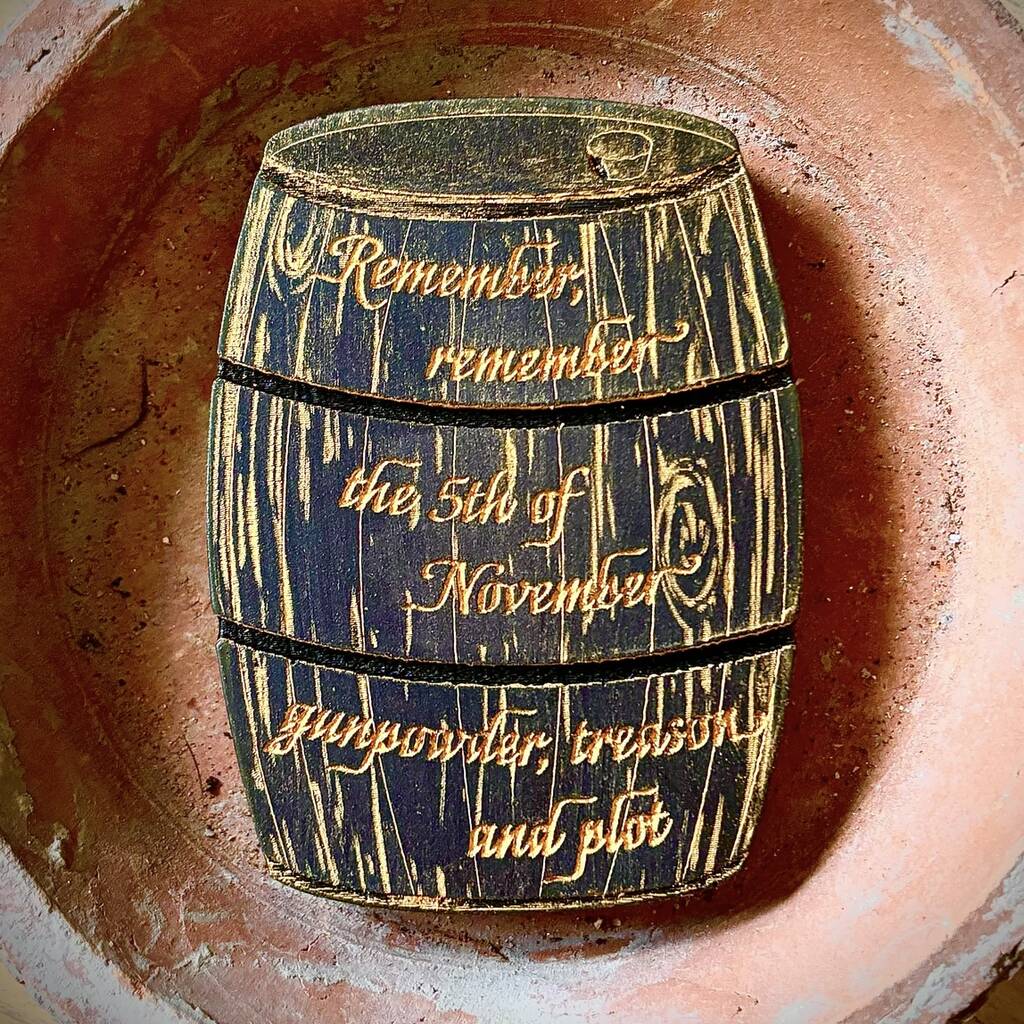 Remember,
remember
the, 5th of
November
gunpowder, treason
and plot